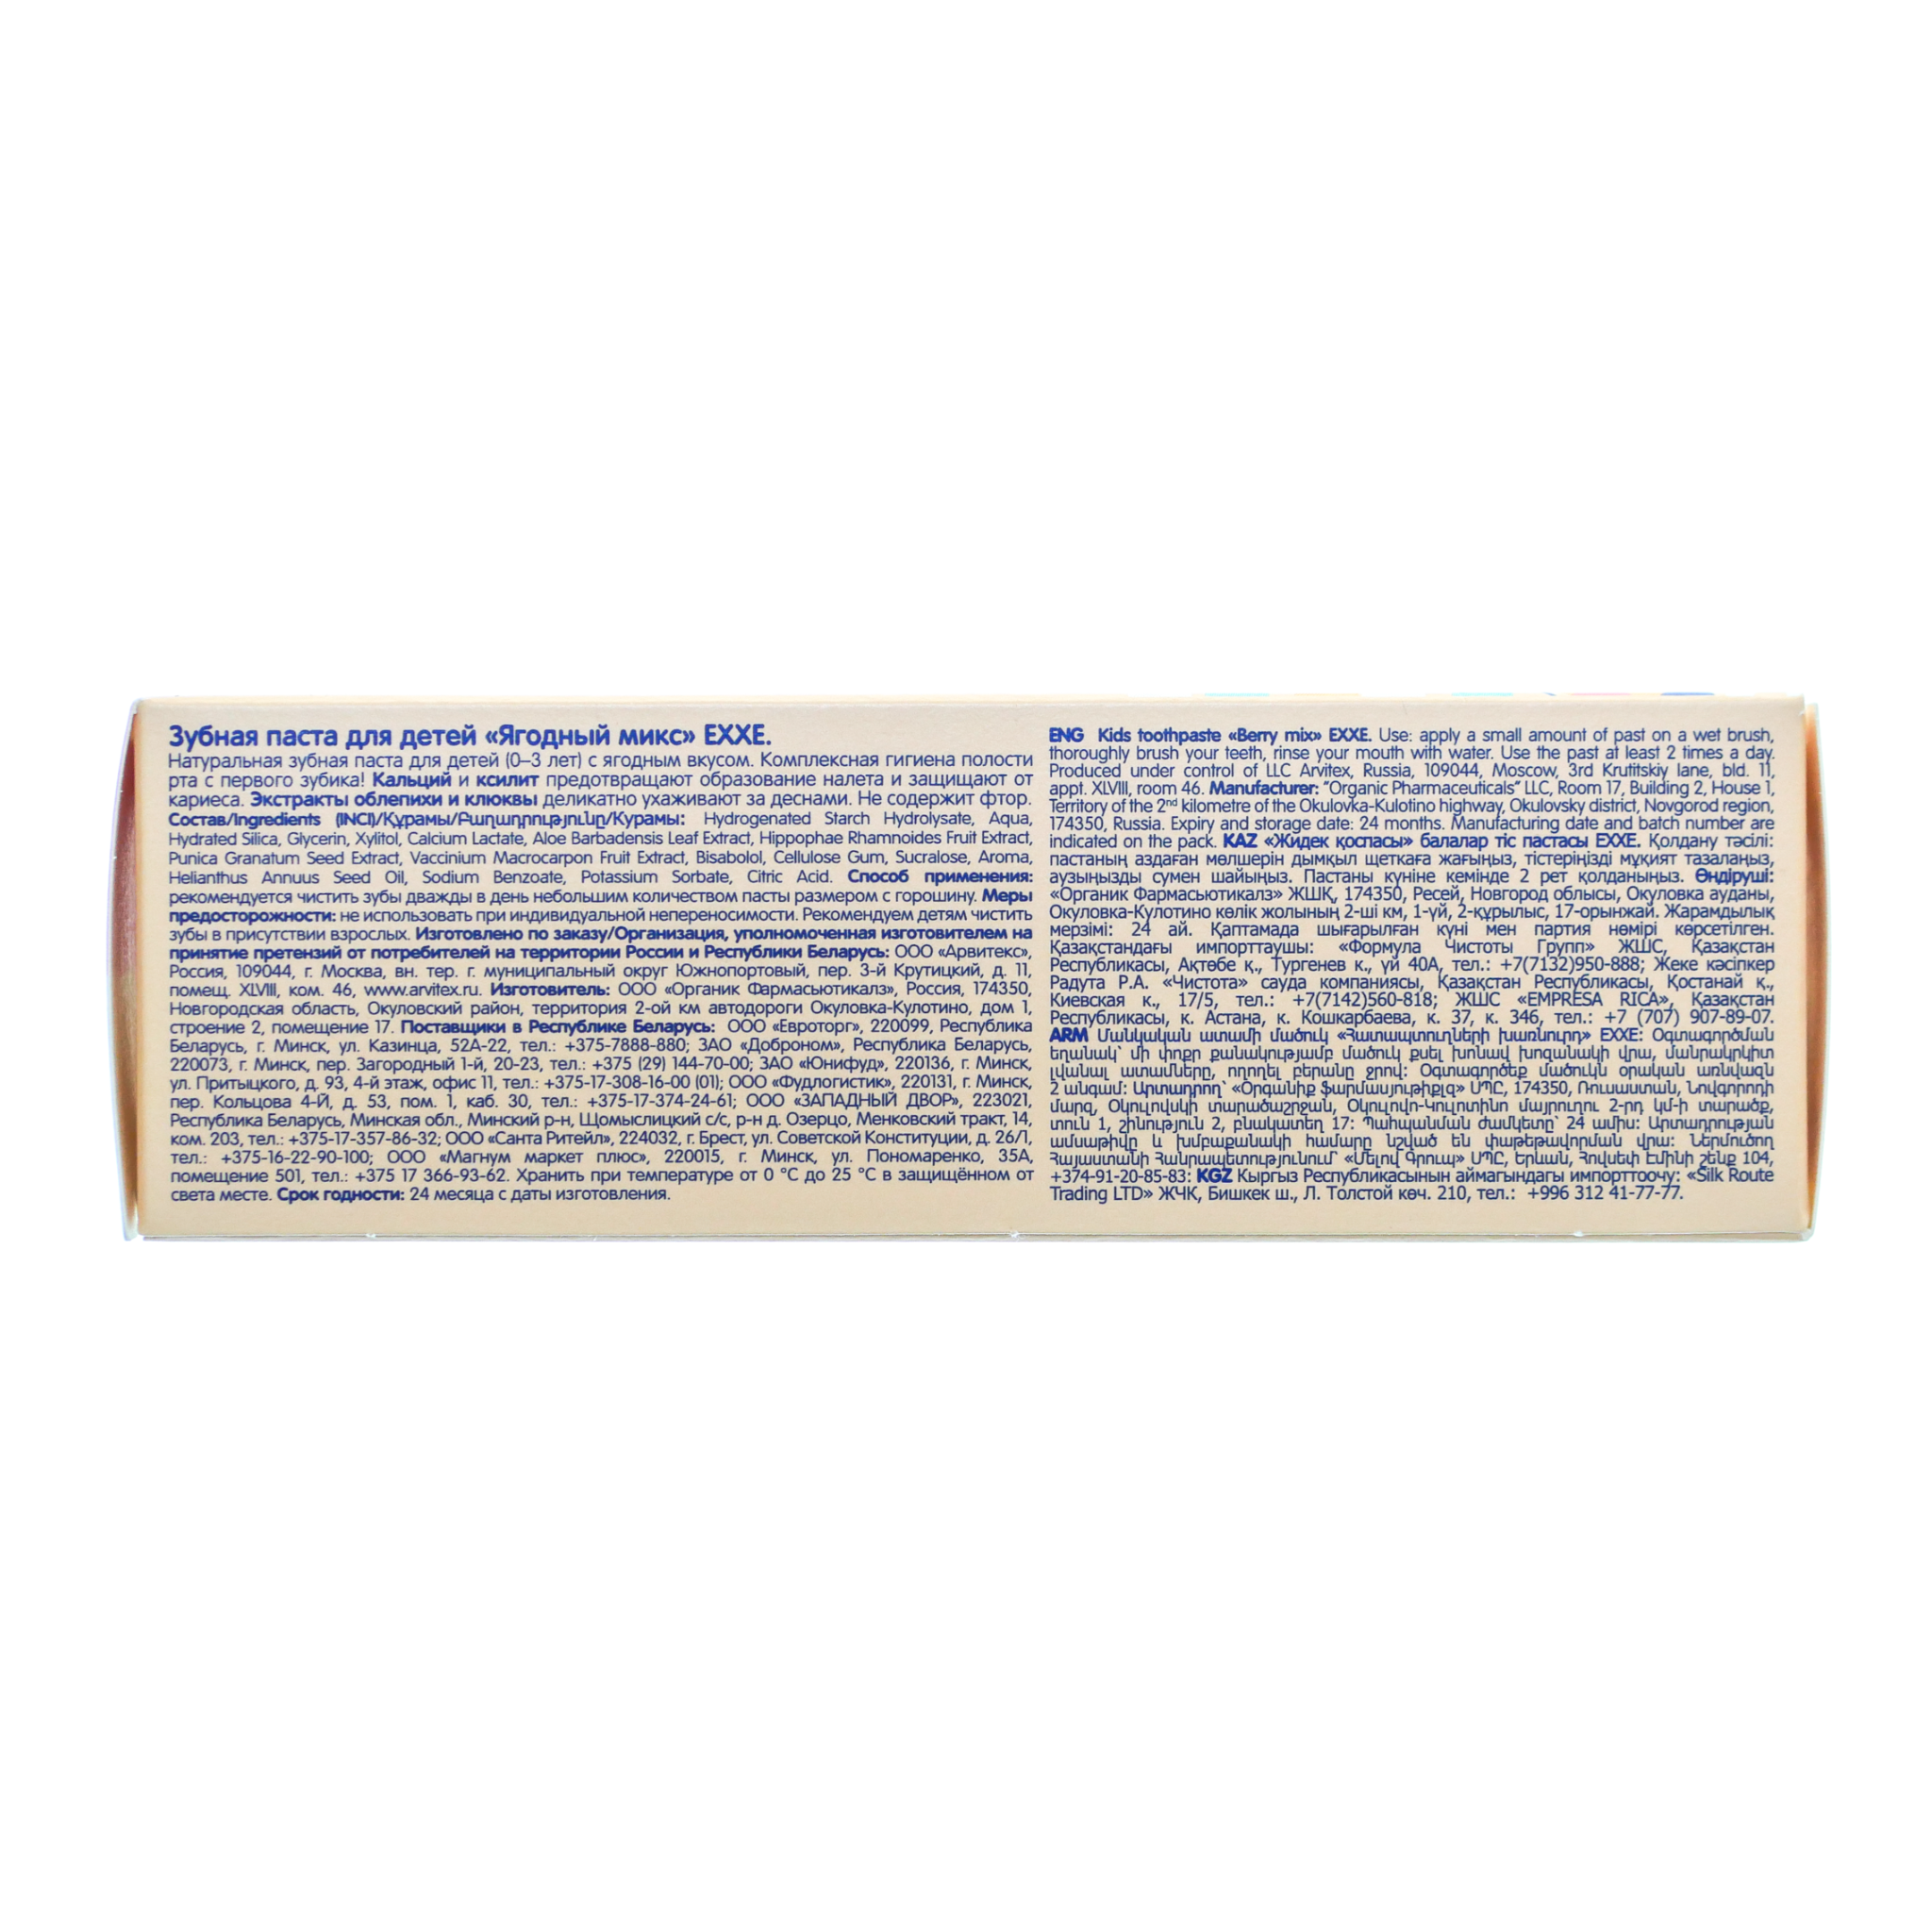 Зубная паста для детей «Ягодный микс» EXXE.
Натуральная зубная паста для детей (0–3 лет) с ягодным вкусом. Комплексная гигиена полости
рта с первого зубика! Кальций и ксилит предотвращают образование налета и защищают от
кариеса. Экстракты облепихи и клюквы деликатно ухаживают за деснами. Не содержит фтор.
Состав/Ingredients (INCI)/Құрамы/Բաղադրությունը/Курамы: Hydrogenated Starch Hydrolysate, Aqua,
Hydrated Silica, Glycerin, Xylitol, Calcium Lactate, Aloe Barbadensis Leaf Extract, Hippophae Rhamnoides Fruit Extract,
Punica Granatum Seed Extract, Vaccinium Macrocarpon Fruit Extract, Bisabolol, Cellulose Gum, Sucralose, Aroma,
Helianthus Annuus Seed Oil, Sodium Benzoate, Potassium Sorbate, Citric Acid. Способ применения:
рекомендуется чистить зубы дважды в день небольшим количеством пасты размером с горошину. Меры
предосторожности: не использовать при индивидуальной непереносимости. Рекомендуем детям чистить
зубы в присутствии взрослых. Изготовлено по заказу/Организация, уполномоченная изготовителем на
принятие претензий от потребителей на территории России и Республики Беларусь: ООО «Арвитекс»,
Россия, 109044, г. Москва, вн. тер. г. муниципальный округ Южнопортовый, пер. 3-й Крутицкий, д. 11,
помещ. XLVIII, ком. 46, www.arvitex.ru. Изготовитель: ООО «Органик Фармасьютикалз», Россия, 174350,
Новгородская область, Окуловский район, территория 2-ой км автодороги Окуловка-Кулотино, дом 1,
строение 2, помещение 17. Поставщики в Республике Беларусь: ООО «Евроторг», 220099, Республика
Беларусь, г. Минск, ул. Казинца, 52А-22, тел.: +375-7888-880; ЗАО «Доброном», Республика Беларусь,
220073, г. Минск, пер. Загородный 1-й, 20-23, тел.: +375 (29) 144-70-00; ЗАО «Юнифуд», 220136, г. Минск,
ул. Притыцкого, д. 93, 4-й этаж, офис 11, тел.: +375-17-308-16-00 (01); ООО «Фудлогистик», 220131, г. Минск,
пер. Кольцова 4-Й, д. 53, пом. 1, каб. 30, тел.: +375-17-374-24-61; ООО «ЗАПАДНЫЙ ДВОР», 223021,
Республика Беларусь, Минская обл., Минский р-н, Щомыслицкий с/с, р-н д. Озерцо, Менковский тракт, 14,
ком. 203, тел.: +375-17-357-86-32; ООО «Санта Ритейл», 224032, г. Брест, ул. Советской Конституции, д. 26/1,
тел.: +375-16-22-90-100; ООО «Магнум маркет плюс», 220015, г. Минск, ул. Пономаренко, 35А,
помещение 501, тел.: +375 17 366-93-62. Хранить при температуре от 0 °C до 25 °C в защищённом от
света месте. Срок годности: 24 месяца с даты изготовления.
ENG Kids toothpaste «Berry mix» EXXE. Use: apply a small amount of past on a wet brush,
thoroughly brush your teeth, rinse your mouth with water. Use the past at least 2 times a day.
Produced under control of LLC Arvitex, Russia, 109044, Moscow, 3rd Krutitskiy lane, bld. 11,
appt. XLVIII, room 46. Manufacturer: "Organic Pharmaceuticals" LLC, Room 17, Building 2, House 1,
Territory of the 2nd kilometre of the Okulovka-Kulotino highway, Okulovsky district, Novgorod region,
174350, Russia. Expiry and storage date: 24 months. Manufacturing date and batch number are
indicated on the pack. KAZ «Жидек қоспасы» балалар тіс пастасы EXXE. Қолдану тәсілі:
пастаның аздаған мөлшерін дымқыл щеткаға жағыңыз, тістеріңізді мұқият тазалаңыз,
аузыңызды сумен шайыңыз. Пастаны күніне кемінде 2 рет қолданыңыз. Өндіруші:
«Органик Фармасьютикалз» ЖШҚ, 174350, Ресей, Новгород облысы, Окуловка ауданы,
Окуловка-Кулотино көлік жолының 2-ші км, 1-үй, 2-құрылыс, 17-орынжай. Жарамдылық
мерзімі: 24 ай. Қаптамада шығарылған күні мен партия нөмірі көрсетілген.
Қазақстандағы импорттаушы: «Формула Чистоты Групп» ЖШС, Қазақстан
Республикасы, Ақтөбе қ., Тургенев к., үй 40А, тел.: +7(7132)950-888; Жеке кәсіпкер
Радута Р.А. «Чистота» сауда компаниясы, Қазақстан Республикасы, Қостанай қ.,
Киевская к., 17/5, тел.: +7(7142)560-818; ЖШС «EMPRESA RICA», Қазақстан
Республикасы, к. Астана, к. Кошкарбаева, к. 37, к. 346, тел.: +7 (707) 907-89-07.
ARM Մանկական ատամի մածուկ «Հատապտուղների խառնուրդ» EXXE: Օգտագործման
եղանակ՝ մի փոքր քանակությամբ մածուկ քսել խոնավ խոզանակի վրա, մանրակրկիտ
լվանալ ատամները, ողողել բերանը ջրով: Օգտագործեք մածուկն օրական առնվազն
2 անգամ: Արտադրող՝ «Օրգանիք ֆարմասյութիքլզ» ՍՊԸ, 174350, Ռուսաստան, Նովգորոդի
մարզ, Օկուլովսկի տարածաշրջան, Օկուլովո-Կուլոտինո մայրուղու 2-րդ կմ-ի տարածք,
տուն 1, շինություն 2, բնակատեղ 17: Պահպանման ժամկետը՝ 24 ամիս: Արտադրության
ամսաթիվը և խմբաքանակի համարը նշված են փաթեթավորման վրա: Ներմուծող
Հայաստանի Հանրապետությունում՝ «Մելով Գրուպ» ՍՊԸ, Երևան, Հովսեփ Էմինի շենք 104,
+374-91-20-85-83: KGZ Кыргыз Республикасынын аймагындагы импорттоочу: «Silk Route
Trading LTD» ЖЧК, Бишкек ш., Л. Толстой көч. 210, тел.: +996 312 41-77-77.